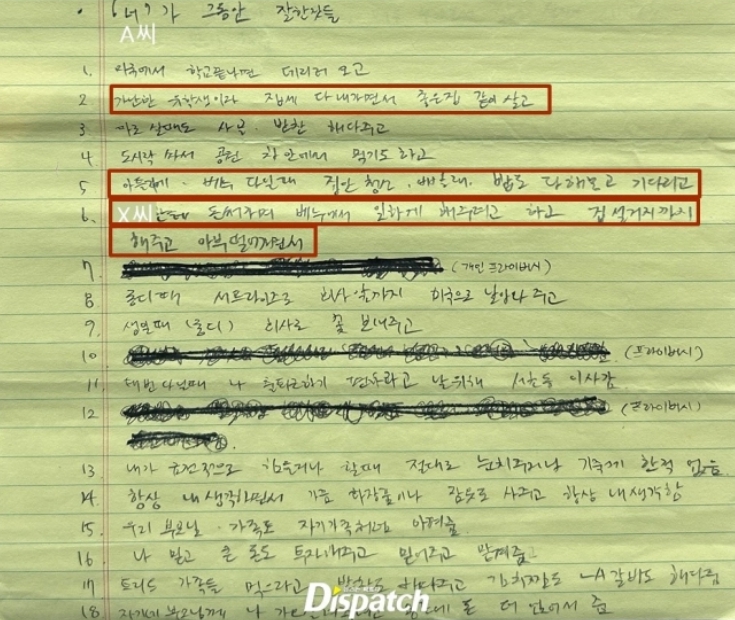 "너"가 그동안 잘한것들
A씨
1. 미국에서 학교끝나면 데리러 오고
2 가난한 유학생이라 집세 다내가면서 좋은집 같이 살고
3 따로 살때도 사골. 반찬 해다주고
4 도시락 싸서 공원 차안에서 먹기도 하고
5 다닐때 집안 청소. 빨래. 밥도 다해보고 기다리고
6. X씨 돈써주며 에서 일하게 해주려고 하고 집 설거지까지
해주고 아부 떨어가면서
7 (개인 프라이버시)
8 서프라이즈로 회사 앞까지 미국으로 날아와 주고
9. 생일때 회사로 꽃 보내주고
10 (프라이버시)
11. 다닐때 나 출퇴근하기 편하라고 날위해 서초동 이사감
12 (프라이버시)
13. 내가 금전적으로 힘들거나 할때 절대로 눈치주거나 기죽게 한적 없음
14. 항상 내생각하면서 가끔 화장품이나 잠옷도 사주고 항상 내생각함
15. 우리 부모님. 가족도 자기가족처럼 아껴줌
16 나 믿고 큰 돈도 투자해주고 믿어주고 맡겨줌
17 가족들 먹으라고 해다주고 LA갈비도 해다줌
18. 자기가 부모님께 나 돈 더 얹어서 줌
Dispatch